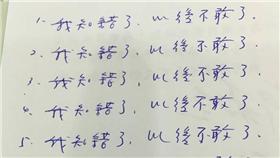 1. 我知錯了. 以後不敢了.
2. 我知錯了. 以後不敢了.
3. 我知錯了. 以後不敢了.
4. 我知錯了. 以後不敢了.
5. 我知錯了. 以後不敢了.